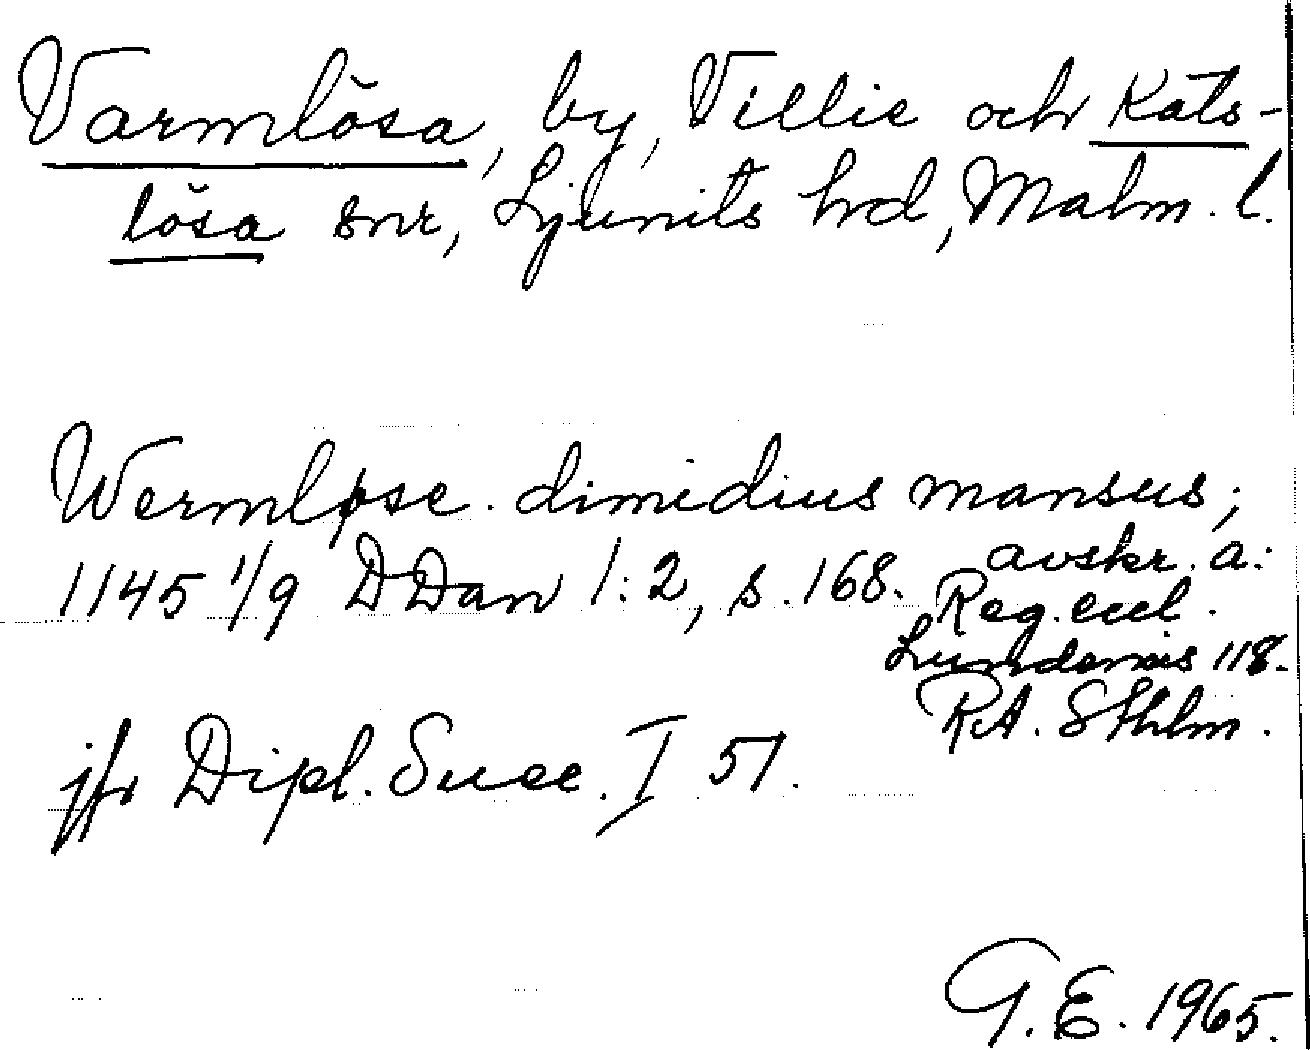 Varmlösa, by, Villie och Kats-
lösa snr, Ljunits hrd, Malm. l.
Wermløse. dimidius mansus;
1145 1/9 DDan 1:2, s. 168. avskr. a:
Reg. eccl.
Lundensis 118.
RA. Sthlm.
jfr Dipl. Suec. I 51.
G. E. 1965.